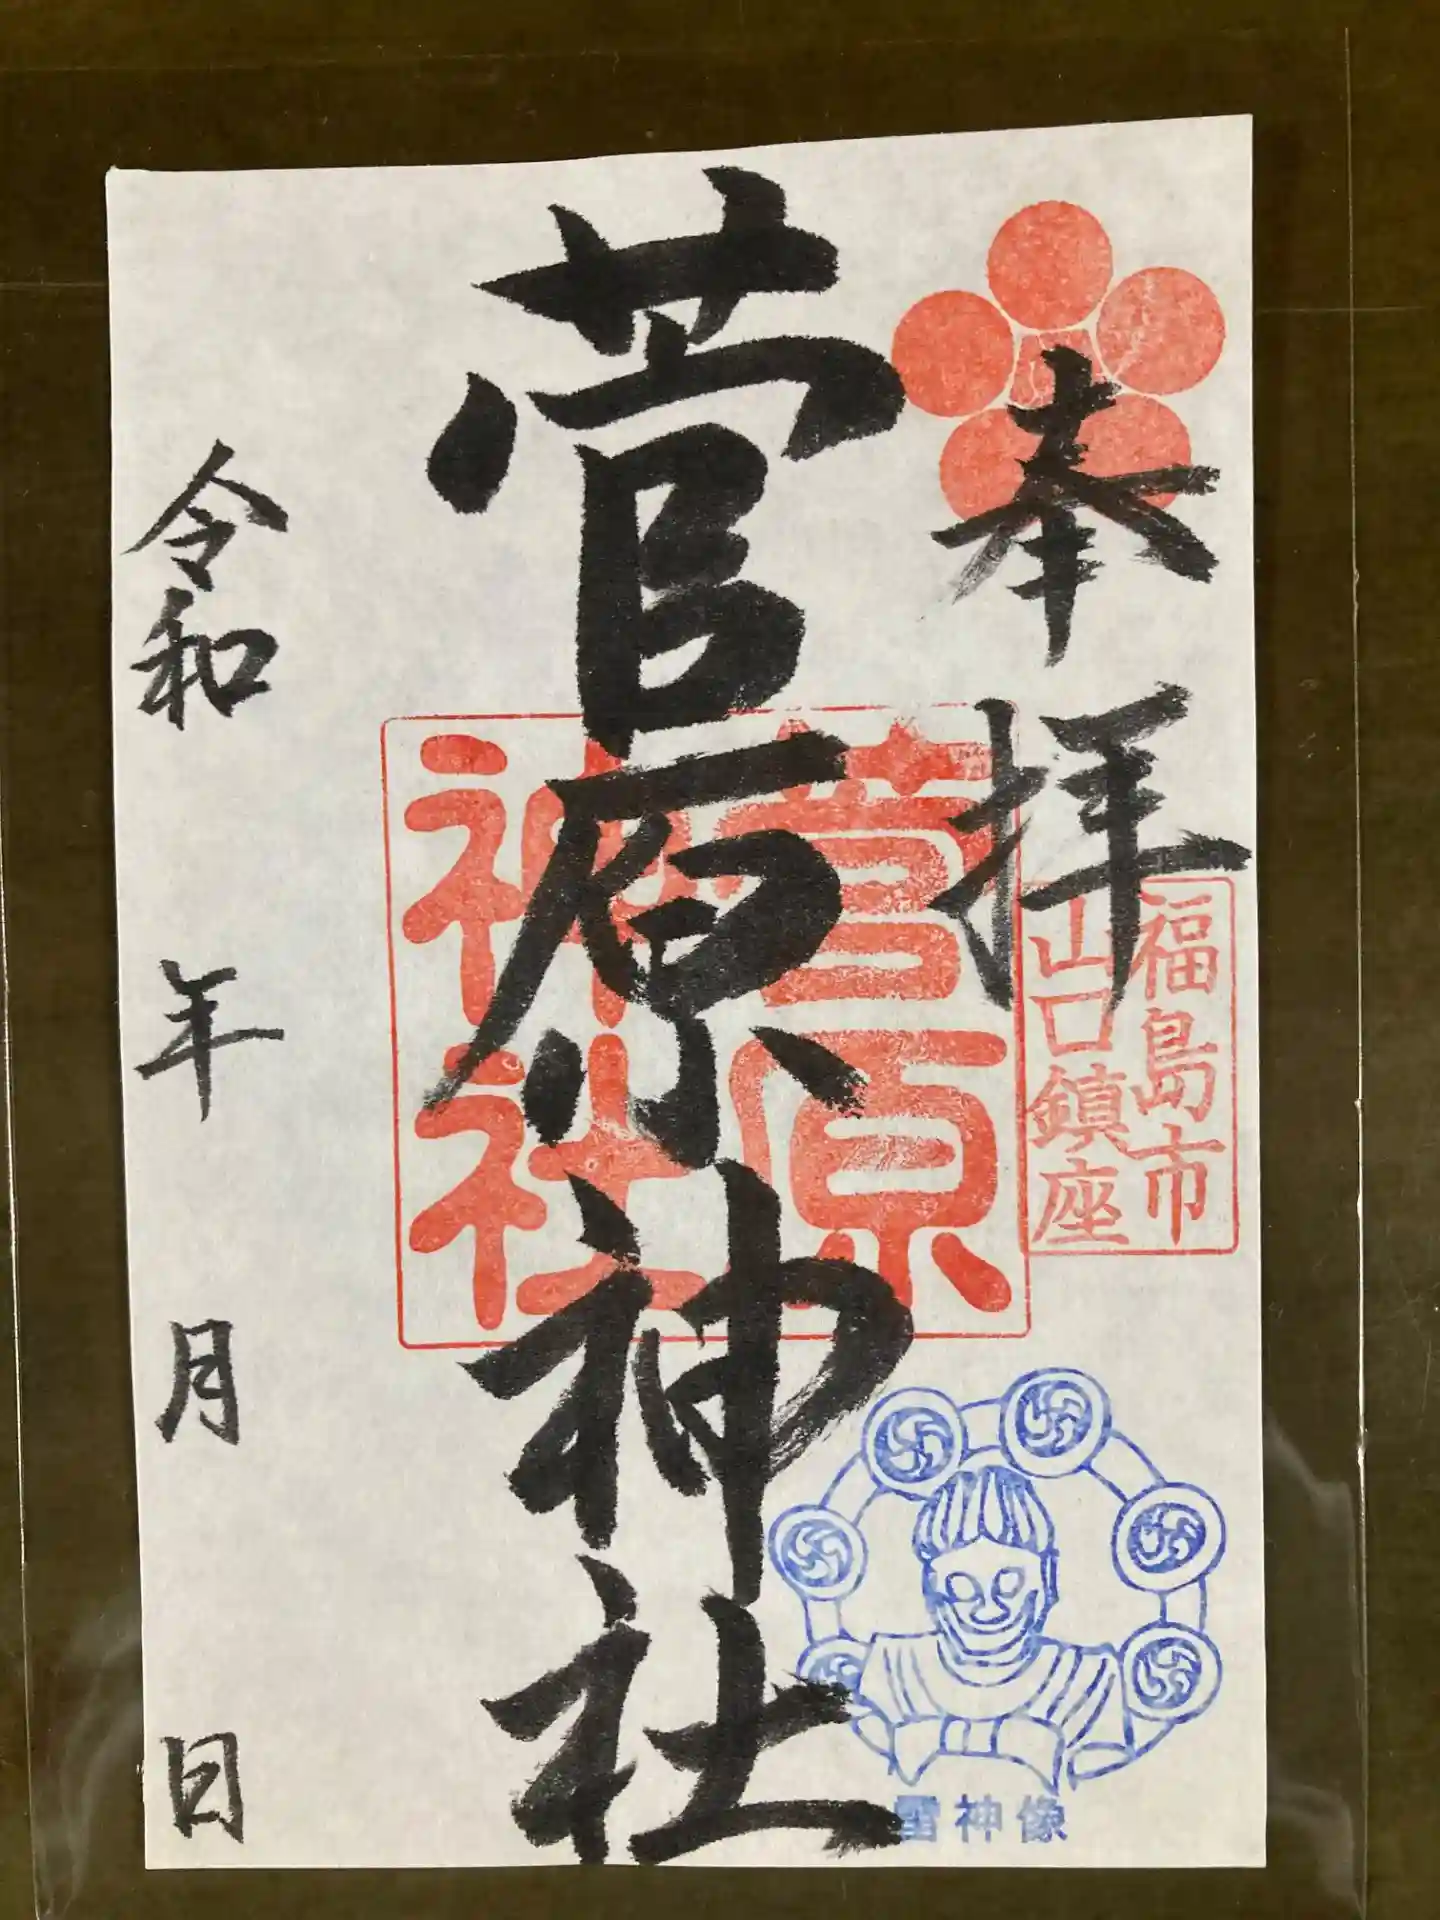 奉拝
福島市
山口鎮座
菅原神社
菅原
神社
令和 年 月 日
雷神像